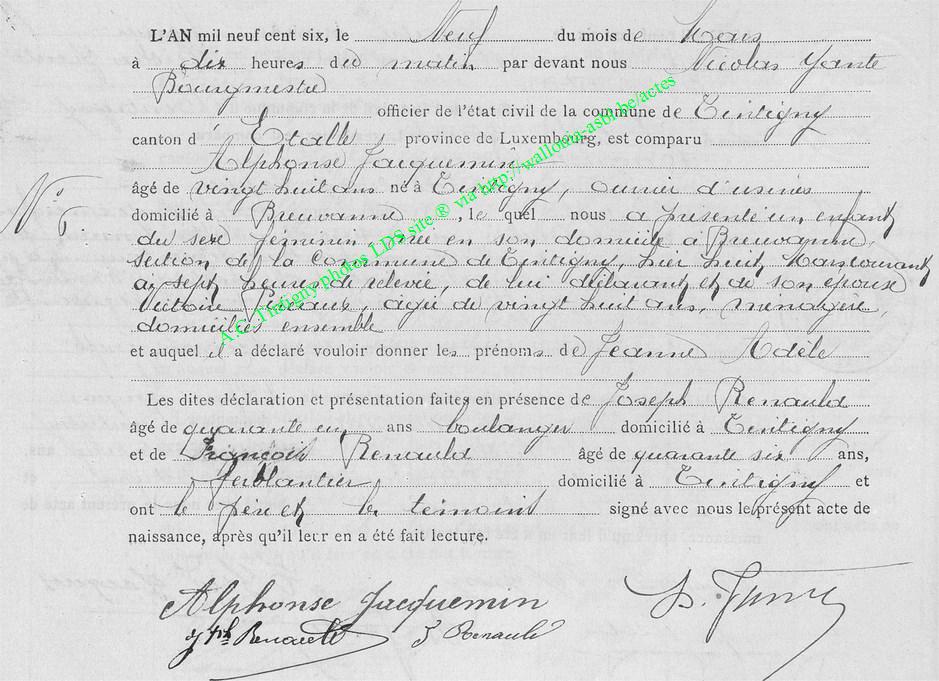 L'AN mil neuf cent six, le Neuf du mois de Mars
à dix heures du matin par devant nous Nicolas Yante
Bourgmestre
officier de l'état civil de la commune de Tintigny
canton d'Etalle province de Luxembourg, est comparu
Alphonse Jacquemin
âgé de vingt huit ans né à Tintigny, ouvrier d'usines
domicilié à Breuvanne, le quel nous a présenté un enfant
du sexe féminin, née en son domicile à Breuvanne,
section de la Commune de Tintigny, hier huit Mars courant
à sept heures de relevée, de lui déclarant et de son épouse
Victoire agée de vingt huit ans, ménagère,
domiciliés ensemble
et auquel il a déclaré vouloir donner les prénoms de Jeanne Adèle
Les dites déclaration et présentation faites en présence de Joseph Renauld
âgé de quarante un ans boulanger domicilié à Tintigny
et de François Renauld âgé de quarante six ans,
ferblantier domicilié à Tintigny et
ont le père et les témoins signé avec nous le présent acte de
naissance, après qu'il leur en a été fait lecture.
Alphonse Jacquemin
Jph Renauld F Renauld
N° 6.
A.C. Tintigny photos LDS site ® via http://wallonia-asbl.be/actes